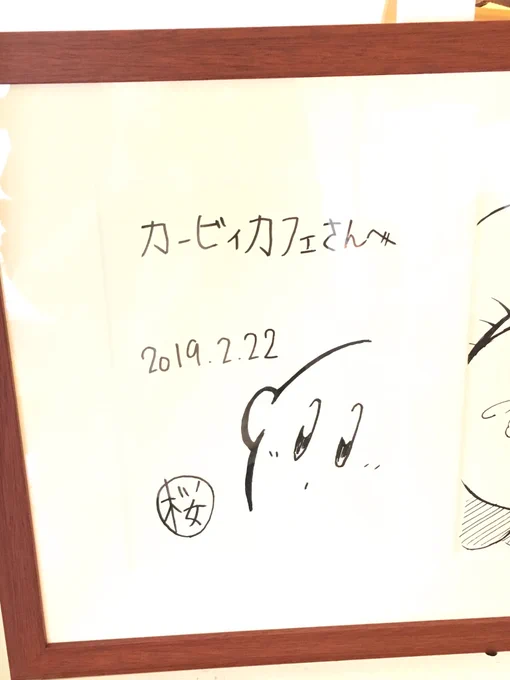 カービィカフェさんへ
2019.2.22
桜